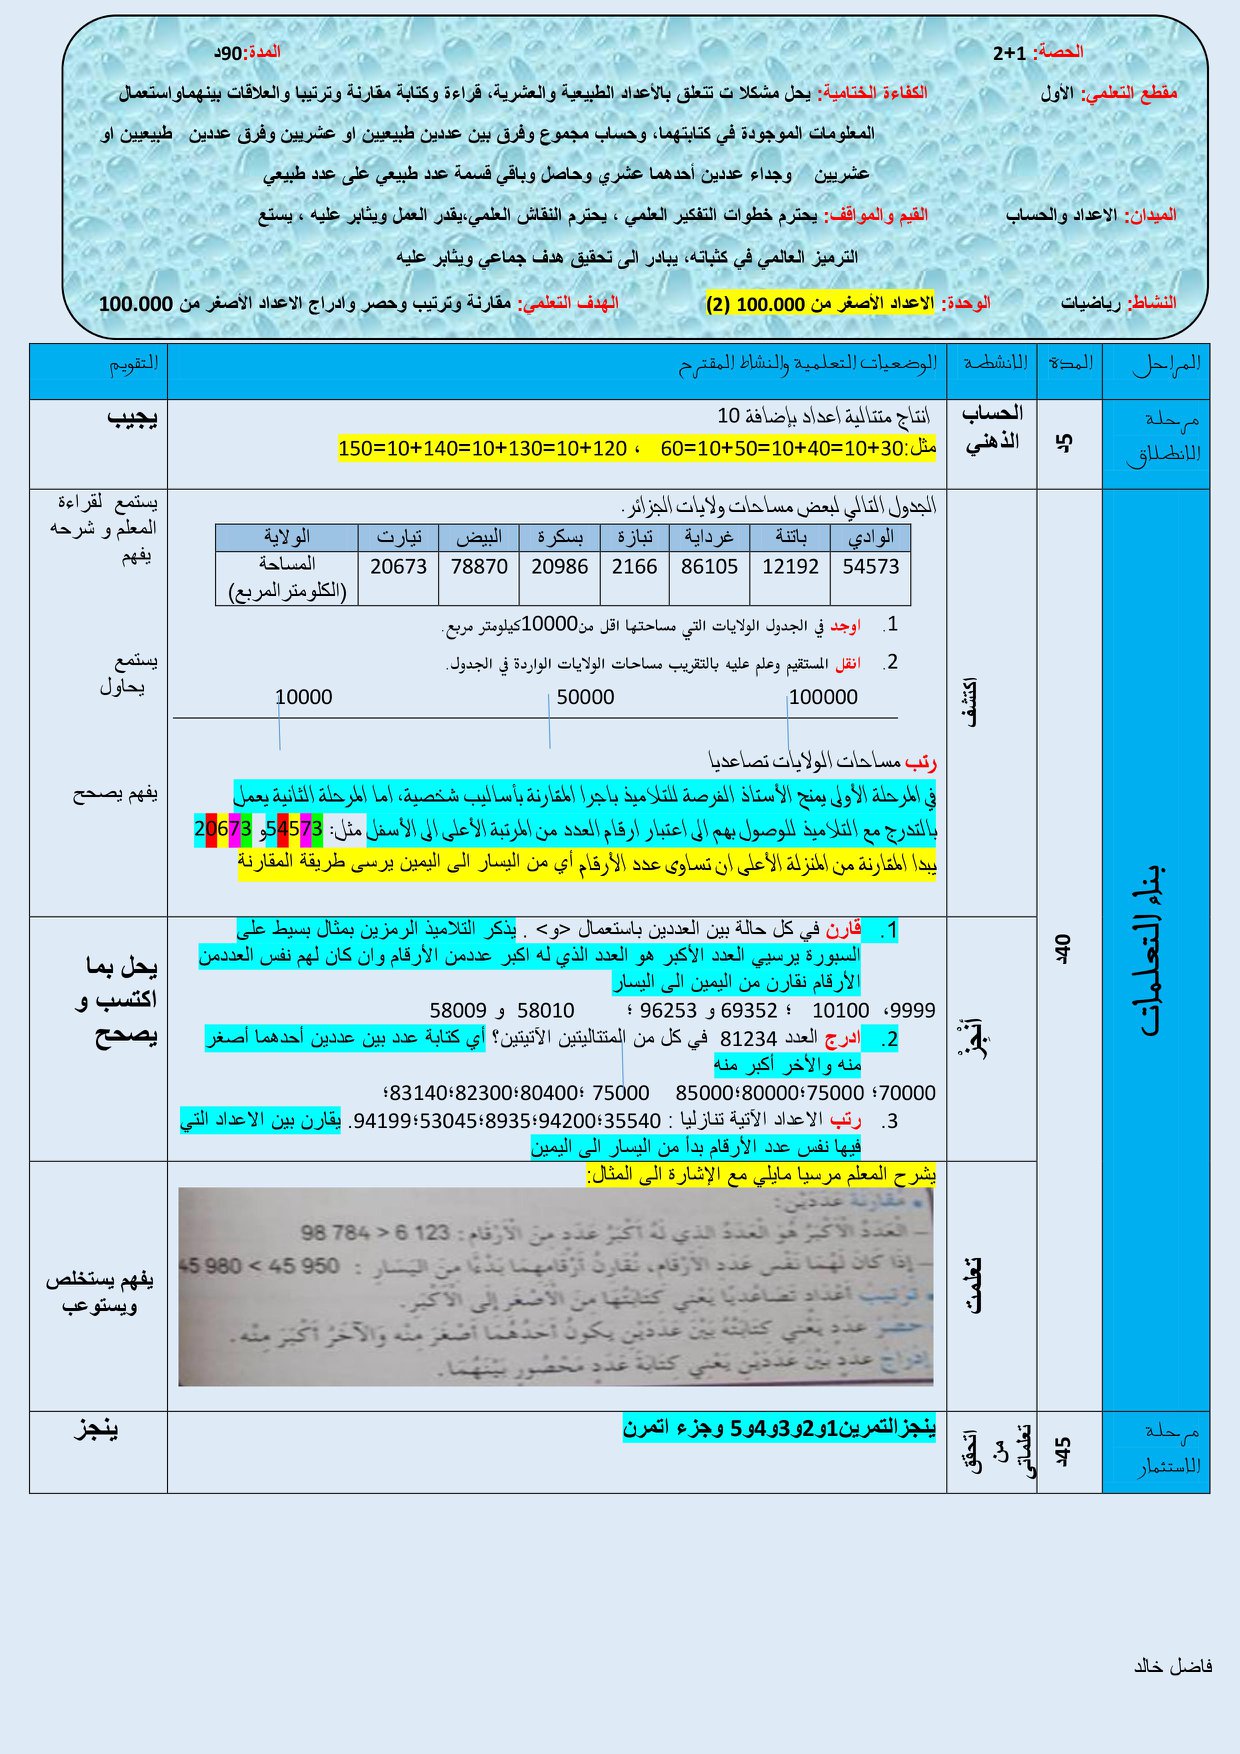 الحصة: 1+2 المدة:90د
مقطع التعلمي: الأول الكفاءة الختامية: يحل مشكلا ت تتعلق بالأعداد الطبيعية والعشرية، قراءة وكتابة مقارنة وترتيبا والعلاقات بينهماواستعمال
المعلومات الموجودة في كتابتهما، وحساب مجموع وفرق بين عددين طبيعيين او عشريين وفرق عددين طبيعيين او
عشريين وجداء عددين أحدهما عشري وحاصل وباقي قسمة عدد طبيعي على عدد طبيعي
الميدان: الاعداد والحساب القيم والمواقف: يحترم خطوات التفكير العلمي ، يحترم النقاش العلمي،يقدر العمل ويثابر عليه ، يستع
الترميز العالمي في كثباته، يبادر الى تحقيق هدف جماعي ويثابر عليه
النشاط: رياضيات الوحدة: الاعداد الأصغر من 100.000 (2) الهدف التعلمي: مقارنة وترتيب وحصر وادراج الاعداد الأصغر من 100.000
المراحل المدة الانشطة الوضعيات التعلمية والنشاط المقترح التقويم
مرحلة الانطلاق
5د
الحساب الذهني
انتاج متتالية اعداد بإضافة 10
مثل:30+10=40+10=50+10=60 ، 120+10=130+10=140+10=150
يجيب
بناء التعلمات
40د
اكتشف
الجدول التالي لبعض مساحات ولايات الجزائر.
الولاية تيارت البيض بسكرة تبازة غرداية باتنة الوادي
المساحة (الكلومترالمربع) 20673 78870 20986 2166 86105 12192 54573
1. اوجد في الجدول الولايات التي مساحتها اقل من10000كيلومتر مربع.
2. انقل المستقيم وعلم عليه بالتقريب مساحات الولايات الواردة في الجدول.
10000 50000 100000
رتب مساحات الولايات تصاعديا
في المرحلة الأولى يمنح الأستاذ الفرصة للتلاميذ باجرا المقارنة بأساليب شخصية، اما المرحلة الثانية يعمل
بالتدرج مع التلاميذ للوصول بهم الى اعتبار ارقام العدد من المرتبة الأعلى الى الأسفل مثل: 54573و 20673
يبدا المقارنة من المنزلة الأعلى ان تساوى عدد الأرقام أي من اليسار الى اليمين يرسى طريقة المقارنة
يستمع لقراءة
المعلم و شرحه
يفهم
يستمع
يحاول
يفهم يصحح
أنْجِزْ
1. قارن في كل حالة بين العددين باستعمال <و> . يذكر التلاميذ الرمزين بمثال بسيط على
السبورة يرسيي العدد الأكبر هو العدد الذي له اكبر عددمن الأرقام وان كان لهم نفس العددمن
الأرقام نقارن من اليمين الى اليسار
9999، 10100 ؛ 69352 و 96253 ؛ 58010 و 58009
2. ادرج العدد 81234 في كل من المتتاليتين الآتيتين؟ أي كتابة عدد بين عددين أحدهما أصغر
منه والأخر أكبر منه
70000؛ 75000؛80000؛85000 75000 ؛80400؛82300؛83140؛
3. رتب الاعداد الآتية تنازليا : 35540؛94200؛8935؛53045؛94199. يقارن بين الاعداد التي
فيها نفس عدد الأرقام بدأ من اليسار الى اليمين
يحل بما
اكتسب و
يصحح
تعلمت
يشرح المعلم مرسيا مايلي مع الإشارة الى المثال:
• مُقارَنة عَدَدَيْن:
– الْعَدَدُ الْأَكْبَرُ هُوَ الْعَدَدُ الذي لَهُ أَكْبَرُ عَدَدٍ مِنَ الْأَرْقَام : 123 6 < 784 98
– إذا كَانَ لَهُمَا نَفْس عَدد الأَرْقَام، نُقَارِنُ أَرْقَامِهِمَا بَدْءًا مِنَ الْيَسَارِ : 950 45 > 980 45
• تَرْتِيبُ أَعْدَادٍ تَصَاعُدِيًّا يَعْنِي كِتَابَتُهَا مِنَ الْأَصْغَرِ إِلَى الْأَكْبَرِ.
حَصْرُ عَدَدٍ يَعْنِي كِتَابَتُهُ بَيْنَ عَدَدَيْنِ يَكُونُ أَحَدُهُمَا أَصْغَرَ مِنْه وَالْآخَرُ أَكْبَرَ مِنْه.
إِدْرَاج عَدَدٍ بَيْنَ عَدَدَيْنِ يَعْنِي كِتَابَةَ عَدَدٍ مَحْصُورٍ بَيْنَهُمَا.
يفهم يستخلص
ويستوعب
مرحلة الاستثمار
45د
اتحقق من تعلماتي
ينجزالتمرين1و2و3و4و5 وجزء اتمرن
ينجز
فاضل خالد